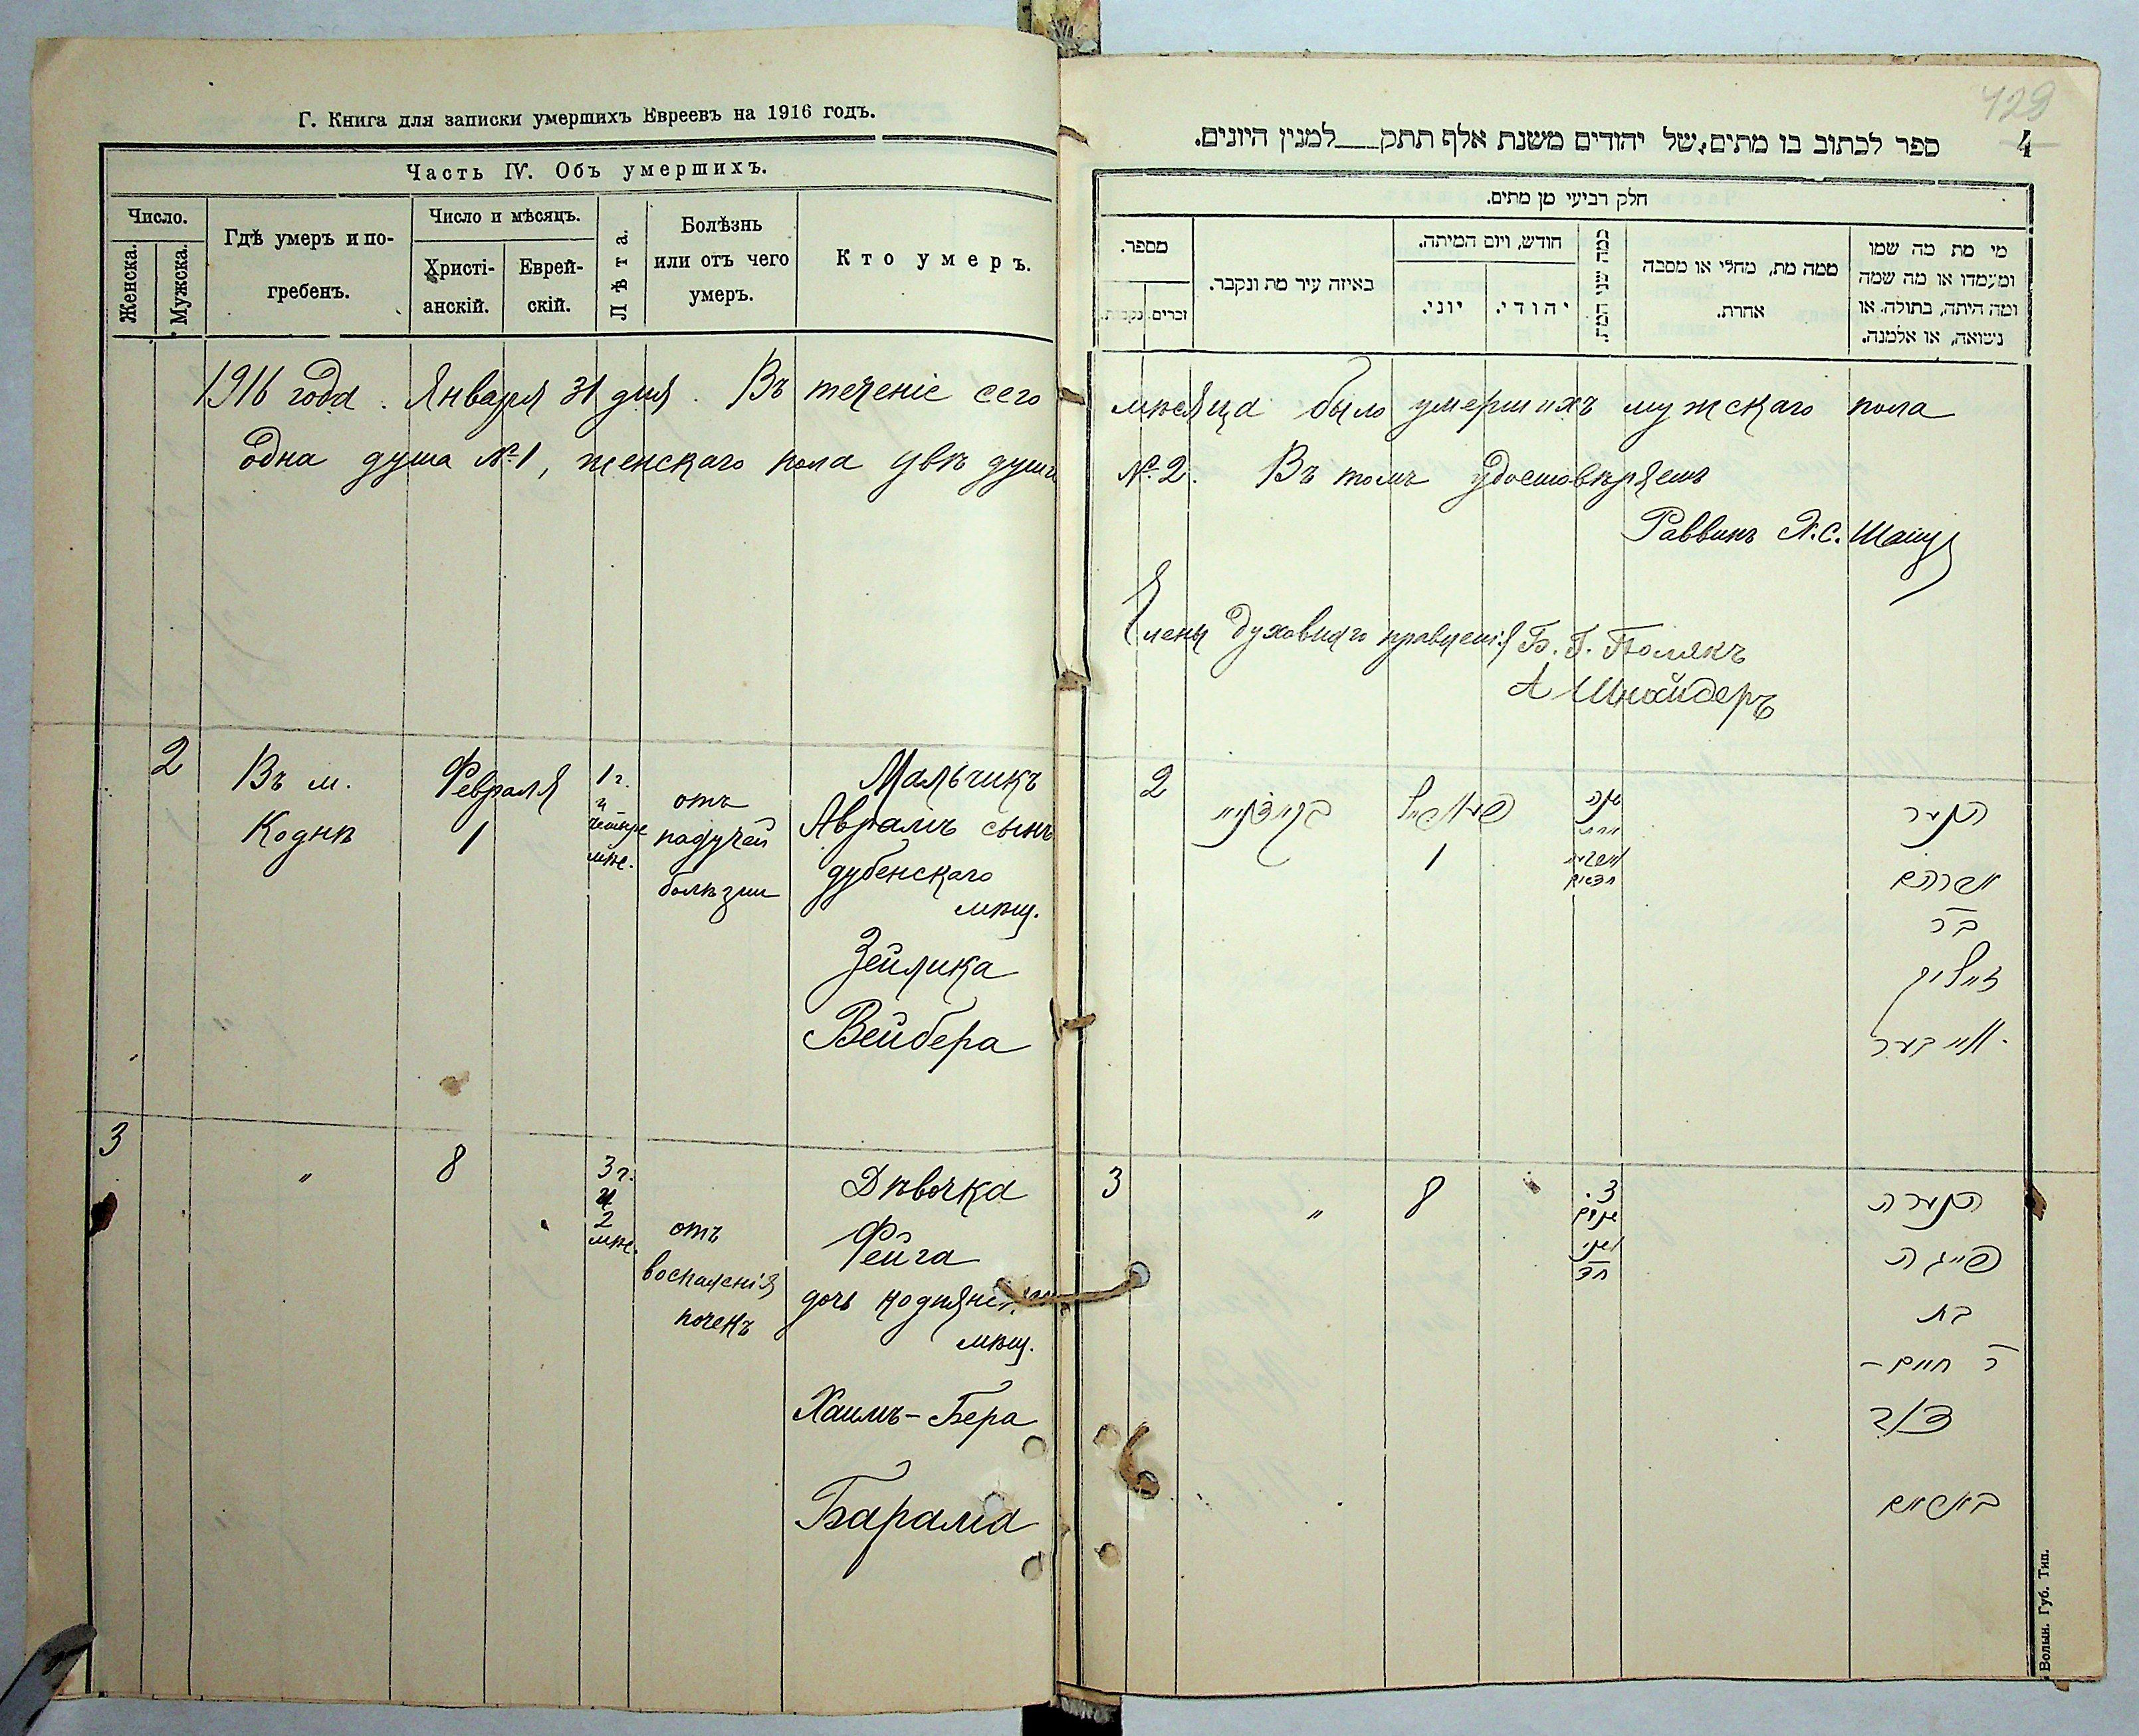 Г. Книга для записки умершихъ Евреевъ на 1916 годъ.
Часть IV. Объ умершихъ.
Число.
Женска.
Мужска.
Гдѣ умеръ и по-
гребенъ.
Число и мѣсяцъ.
Христі-
анскій.
Еврей-
скій.
Лѣта.
Болѣзнь
или отъ чего
умеръ.
Кто умеръ.
1916 года. Января 31 дня. Въ теченіе сего
одна душа №1, женскаго пола двѣ души
2
Въ м.
Коднѣ
Февраля
1
1 г.
и
четыре
мѣс.
отъ
падучей
болѣзни
Мальчикъ
Аврамъ сынъ
дубенскаго
мѣщ.
Зейлика
Вейбера
3
"
8
3 г.
и
2
мѣс.
отъ
воспаленія
почекъ
Дѣвочка
Фейга
дочь
мѣщ.
Хаимъ-Бера
Барама
429
4
ספר לכתוב בו מתים, של יהודים משנת אלף תתק___למנין היונים.
חלק רביעי מן מתים.
מספר.
זכרים.
נקבות.
באיזה עיר מת ונקבר.
חודש, ויום המיתה.
יוני.
יהודי.
כמה שני המת.
ממה מת, מחלי או מסבה
אחרת.
מי מת מה שמו
ומעמדו או מה שמה
ומה היתה, בתולה, או
נשואה, או אלמנה.
мѣсяца было умершихъ мужскаго пола
№2. Въ томъ удостовѣряемъ
Раввинъ
Члены духовнаго правленія Б. Г. Полякъ
А Шнайдеръ
2
1
שנה
חדשים
הנער
אברהם
בר
זייליק
ווייבער
3
"
8
3
שנים
ושני
חד
הנערה
פייגה
בת
ר חיים -
דוב
באראם
Волын. Губ. Тип.